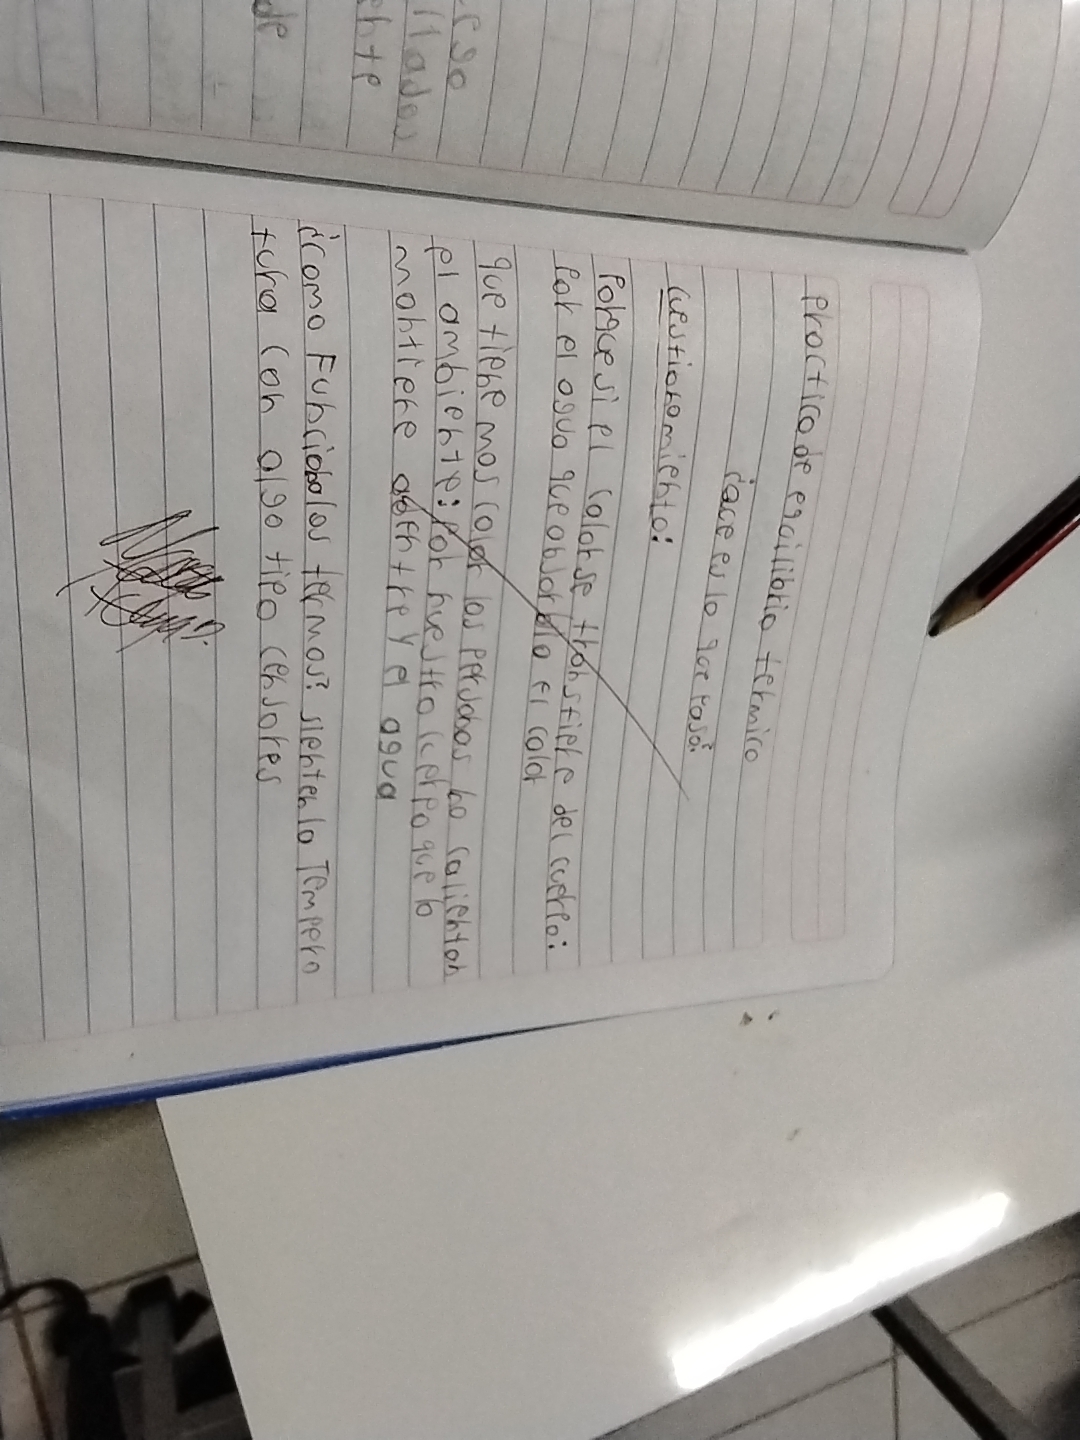 rgo
llados
ente
de
Practica de equilibrio termico
¿que es lo que paso?
Cuestionamiento:
Porque si el calor se transfiere del cuerpo:
Por el agua que absorbio el calor
que tiene mas calor las personas no calientan
el ambiente: por nuestro cuerpo que lo
mantiene entre y el agua
¿como Funcionalos termos? sienten la Tempera
tura con algo tipo censores